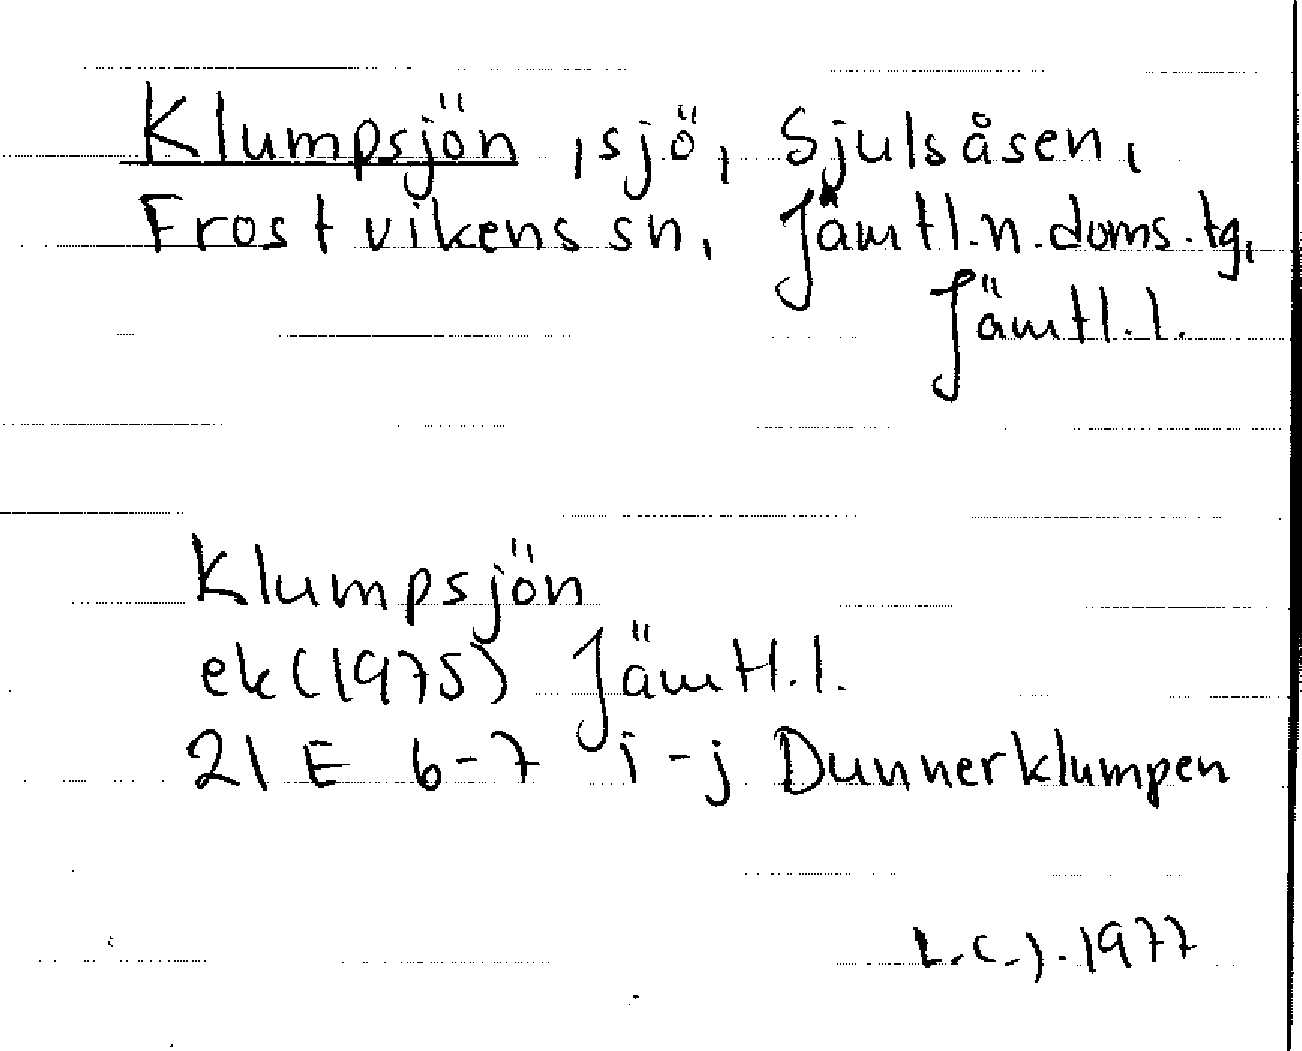 Klumpsjön, sjö, Sjulsåsen,
Frostvikens sn, Jämtl.n.doms.tg,
Jämtl.l.
Klumpsjön
ek(1975) Jämtl.l.
21 E 6-7 i-j Dunnerklumpen
L.C.J. 1977